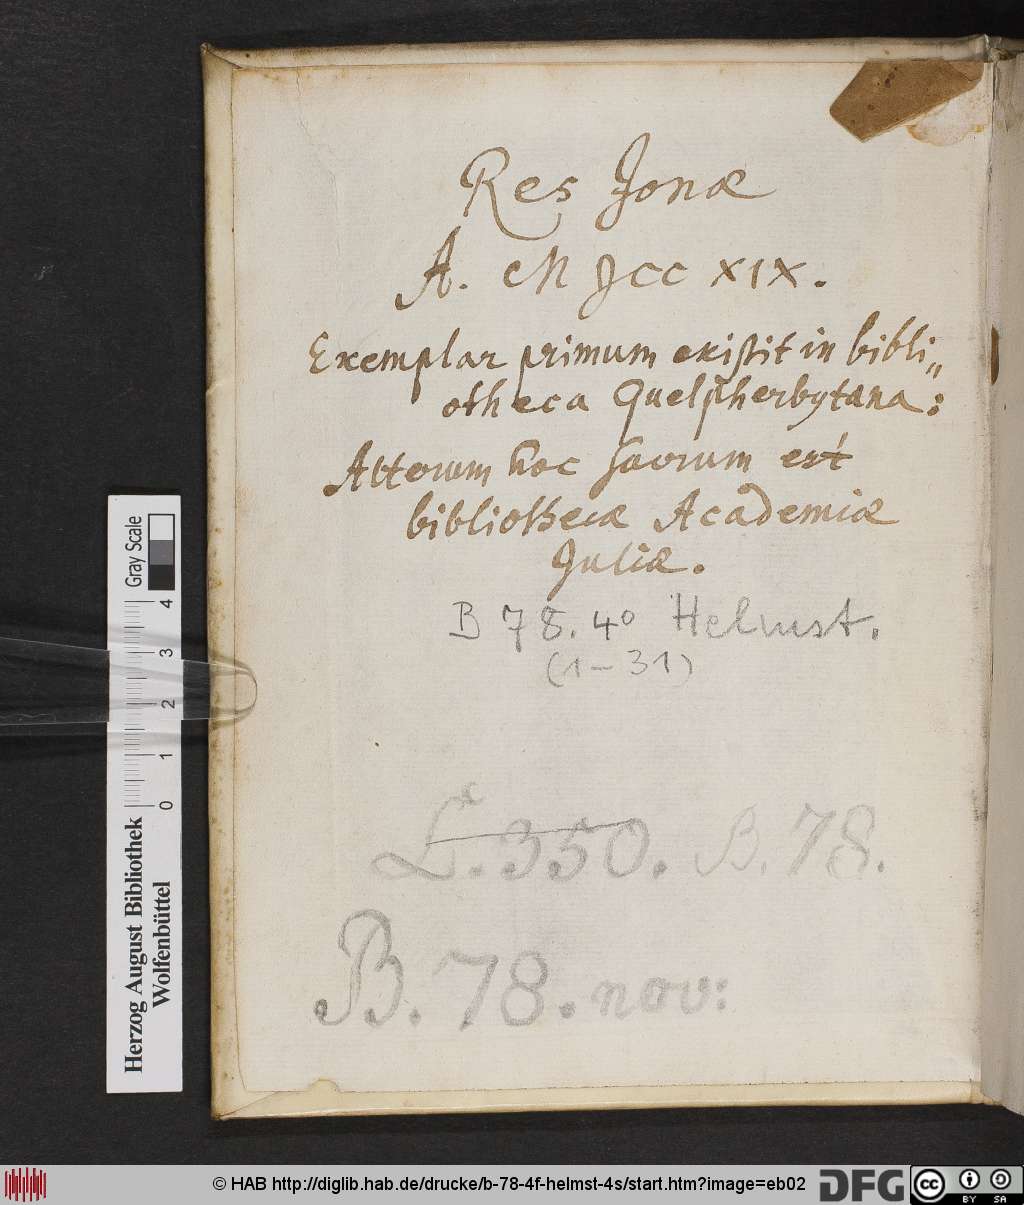 Res Jonæ
A. M DCC XIX.
Exemplar primum existit in bibli„
otheca Quelpherbytana:
Alterum hoc sacrum est
bibliothecæ Academiæ
Juliæ.
B 78. 4° Helmst.
(1-31)
L. 350. B. 78.
B. 78. nov:
Gray Scale
0 1 2 3 4
Herzog August Bibliothek
Wolfenbüttel
© HAB http://diglib.hab.de/drucke/b-78-4f-helmst-4s/start.htm?image=eb02
DFG
cc BY SA